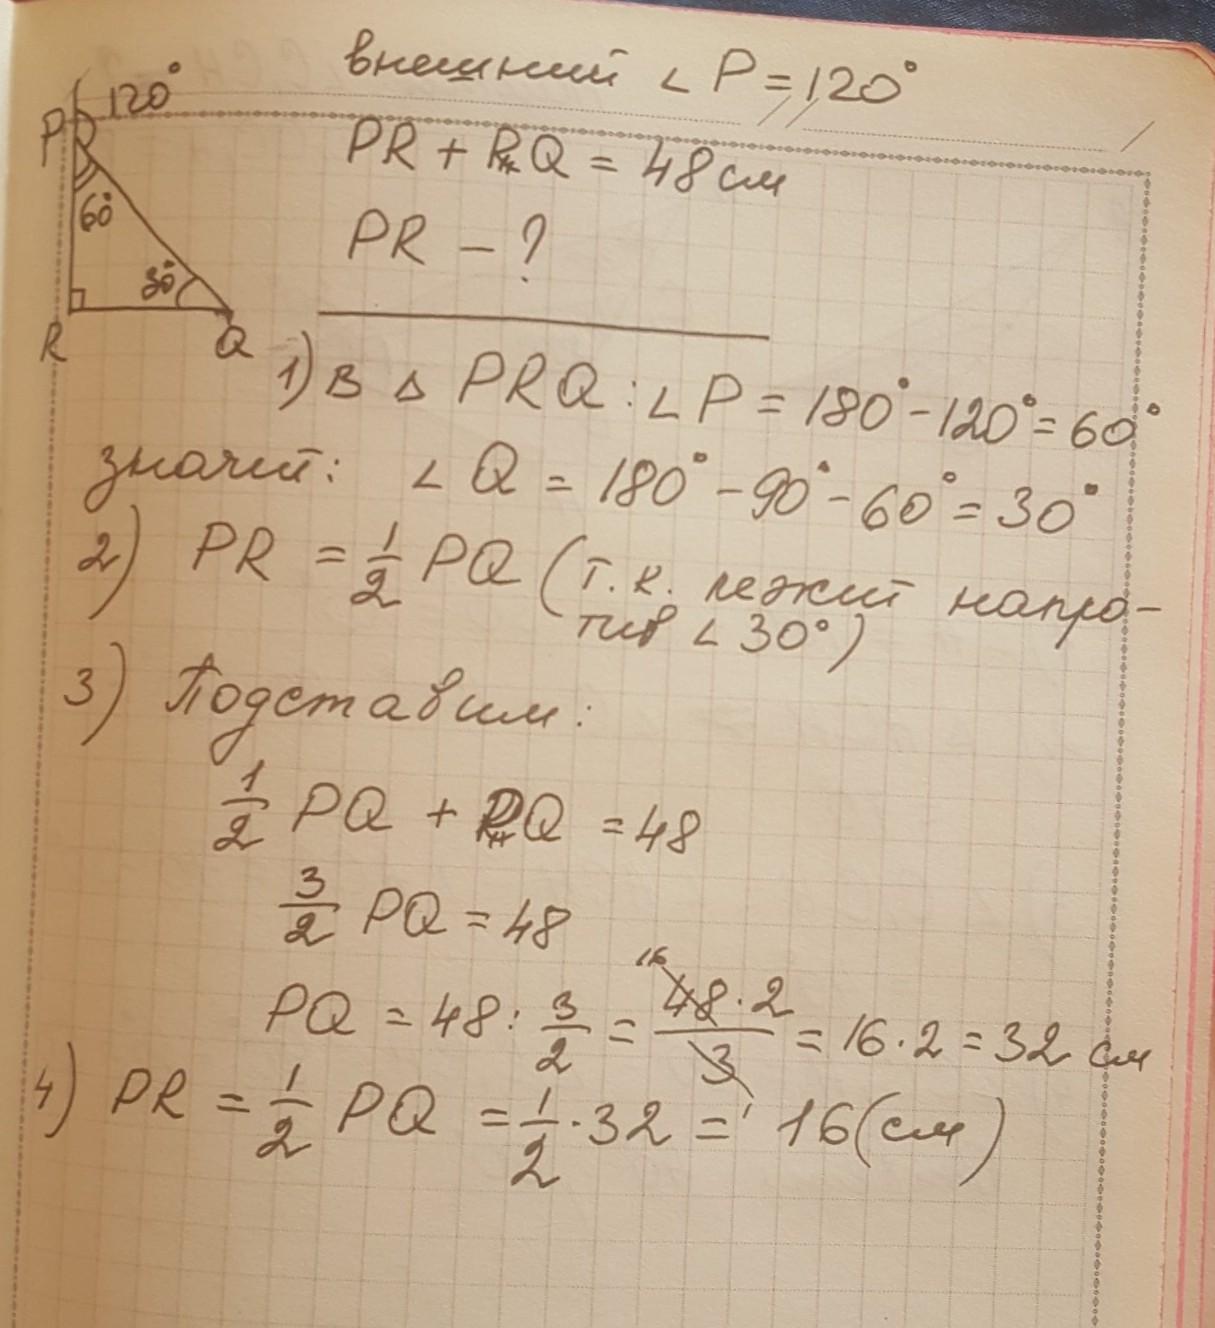 внешний ∠P = 120°
120°
P
PR + PQ = 48 см
60°
PR – ?
30°
R
Q
1) В Δ PRQ : ∠P = 180° - 120° = 60°
значит: ∠Q = 180° - 90° - 60° = 30°
2) PR = 1/2 PQ (т.к. лежит напро-
тив ∠30°)
3) Подставим:
1/2 PQ + PQ = 48
3/2 PQ = 48
16
PQ = 48 : 3/2 = 48·2/3 = 16·2 = 32 см
1
4) PR = 1/2 PQ = 1/2 · 32 = 16 (см)